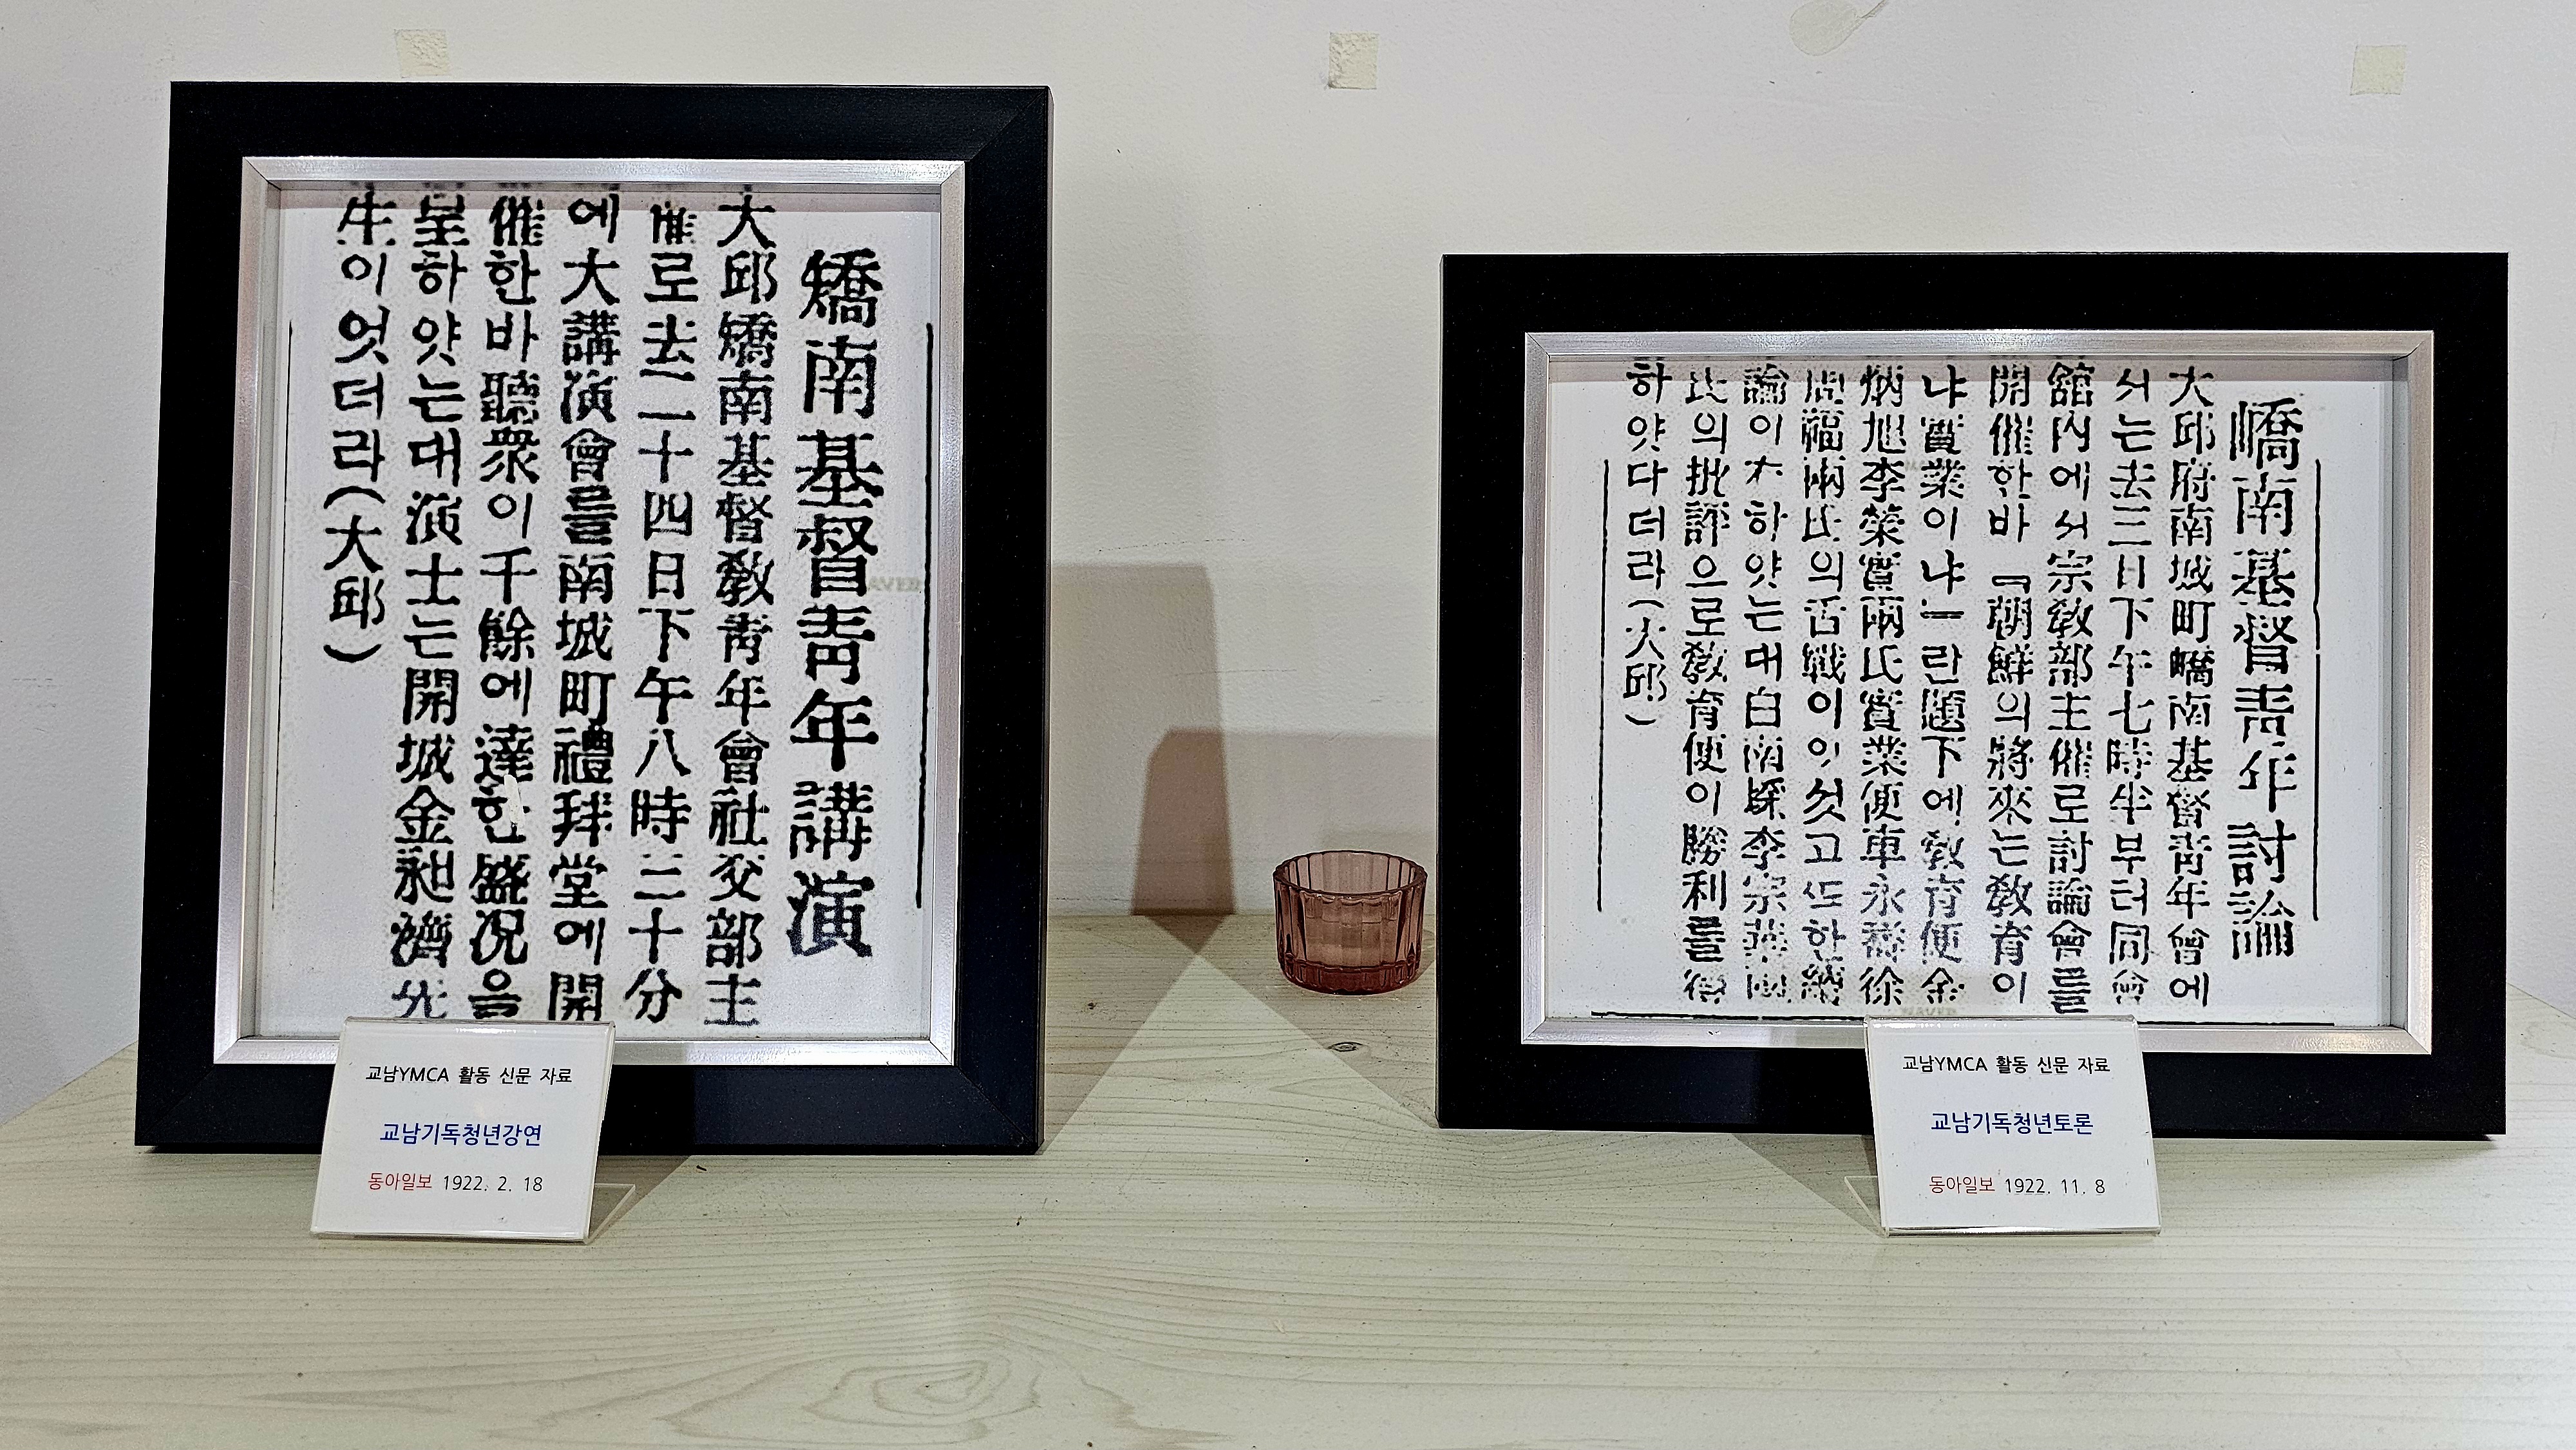 矯南基督青年講演
大邱矯南基督敎靑年會社交部主
催로去二十四日下午八時三十分
에大講演會를南城町禮拜堂에開
催한바聽衆이千餘에達한盛况을
呈하얏는대演士는開城金昶濟先
生이엇더라(大邱)
교남YMCA 활동 신문 자료
교남기독청년강연
동아일보 1922. 2. 18
嶠南基督青年討論
大邱府南城町嶠南基督靑年會에
서는去三日下午七時半부터同會
舘內에서宗敎部主催로討論會를
開催한바『朝鮮의將來는敎育이
냐實業이냐』란題下에敎育便金
炳旭李榮實兩氏實業便車永 徐
福兩氏의舌戰이잇섯고 한
論이 하얏는대白南 李宗
氏의批評으로敎育便이勝利를得
하얏다더라(大邱)
교남YMCA 활동 신문 자료
교남기독청년토론
동아일보 1922. 11. 8